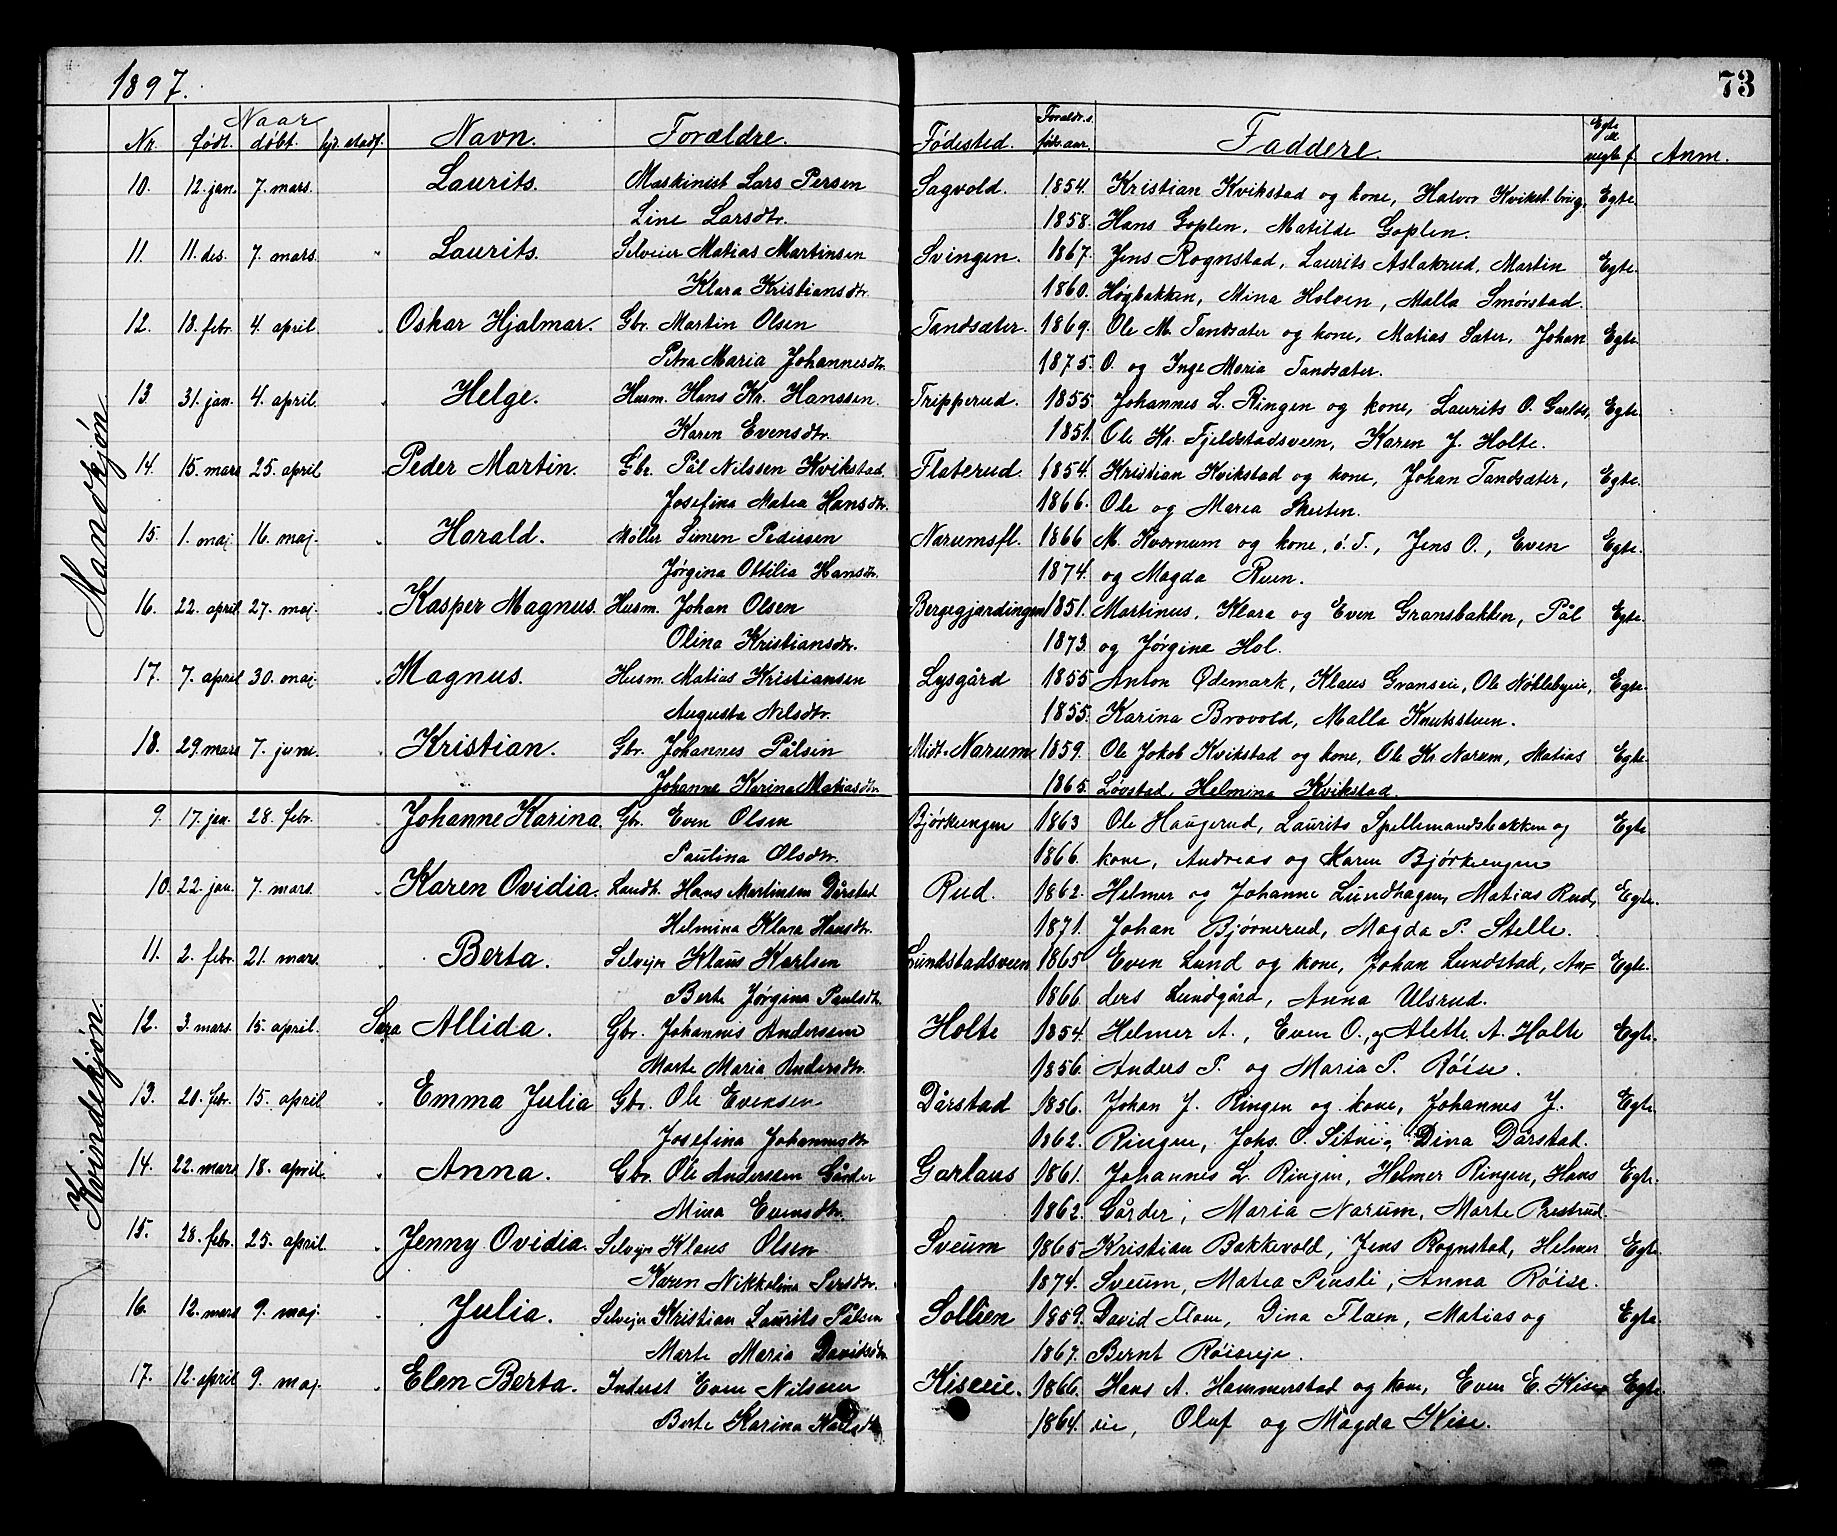 1897.
73
Naar
Nr. født. døbt. hjr. stadf. Navn. Forældre. Fødested. Foreldr.s føds.aar. Faddere. Egte el. uegte f. Anm.
Mandkjøn
10. 12. jan. 7. mars. Laurits. Maskinist Lars Persen Sagvold. 1854. Kristian Kvikstad og kone, Halvor Kvikst.brug, Egte.
Line Larsdtr. 1858. Hans Goplen, Matilde Goplen.
11. 11. des. 7. mars. " Laurits. Selveier Matias Martinsen Svingen. 1867. Jens Rognstad, Laurits Aslakrud, Martin Egte.
Klara Kristiansdtr. 1860. Høgbakken, Mina Holven, Malla Smørstad.
12. 18. febr. 4. april. " Oskar Hjalmar. Gbr. Martin Olsen Tandsæter. 1869. Ole M. Tandsæter og kone, Matias Sæter, Johan Egte.
Petra Maria Johannesdtr. 1875. O. og Inge Maria Tandsæter.
13. 31. jan. 4. april. " Helge. Husm. Hans Kr. Hanssen. Tripperud. 1855. Johannes L. Ringen og kone, Laurits O. Garlos, Egte.
Karen Evensdtr. 1851. Ole Kr. Fjeldstadsveen, Karen J. Holte.
14. 15. mars 25. april " Peder Martin. Gbr. Pål Nilssen Kvikstad. Flaterud. 1854. Kristian Kvikstad og kone, Johan Tandsæter, Egte.
Josefina Matea Hansdtr. 1866. Ole og Marea Skuten.
15. 1. maj 16. maj. " Harald. Møller Simen Pedersen Narumsfl. 1866 M. Kvernum og kone, ó. T., Jens O., Even Egte.
Jørgina Ottilia Hansdtr. 1874. og Magda Ruen.
16. 22. april 27. maj. " Kasper Magnus. Husm. Johan Olsen Bergegjerdingen 1851. Martinus, Klara og Even Gransbakken, Pål Egte.
Olina Kristiansdtr. 1873. og Jørgine Hol.
17. 7. april 30. maj. " Magnus. Husm. Matias Kristiansen Lysgård 1855 Anton Ødemark, Klaus Granseie, Ole Nøklebyeie, Egte.
Augusta Nilsdtr. 1855. Karina Brovold, Malla Knutsstuen.
18. 29. mars 7. juni. " Kristian. Gbr. Johannes Pålsen Midt-Narum 1859. Ole Jakob Kvikstad og kone, Ole Kr Narum, Matias Egte.
Johanne Karina Matiasdtr. 1865. Løvstad, Helmina Kvikstad.
Kvindekjøn.
9. 17. jan. 28. febr. " Johanne Karina. Gb. Even Olsen Bjørkengen 1863 Ole Haugerud, Laurits Spellemandsbakken og Egte
Paulina Olsdtr. 1866. kone, Andreas og Karen Bjørkengen
10. 22. jan. 7. mars. " Karen Ovidia. Landh. Hans Martinsen Dårstad Rud. 1862. Helmer og Johanne Lundhagen, Matias Rud, Egte.
Helmina Klara Hansdtr. 1871. Johan Bjørnerud, Magda P. Stelle.
11. 2. febr. 21. mars. " Berta. Selvejer Klaus Karlsen Lundstadsveen 1865 Even Lund og kone, Johan Lundstad, An= Egte.
Berte Jørgina Paulsdtr. 1866. ders Lundgård, Anna Ulsrud.
12. 3. mars. 15. april. Sara Allida. Gbr. Johannes Andersen Holte 1854. Helmer A., Even O., og Alette A. Holte Egte.
Marte Maria Andersdtr. 1856. Anders P. og Maria P. Røise.
13. 20. febr. 15. april " Emma Julia Gbr. Ole Evensen Dårstad 1856. Johan J. Ringen og kone, Johannes J. Egte
Josefina Johannesdtr 1862. Ringen, Johs. O. Sitni, Dina Dårstad.
14. 22. mars 18. april. " Anna. Gbr. Ole Andersen Gårder Garlaus 1861. Johannes L. Ringen, Helmer Ringen, Hans Egte.
Mina Evensdtr. 1862. Gårder, Maria Narum, Marte Prestrud.
15. 28. febr. 25. april. " Jenny Ovidia. Selvejr Klaus Olsen Sveum 1865 Kristian Bakkevold, Jens Rognstad, Helmer Egte.
Karen Nikkoline Persdtr. 1874. Sveum, Matea Pinsli, Anna Røise.
16. 12. mars 9. maj. " Julia. Selvejer Kristian Laurits Pålsen Sollien 1859. David Moen, Dina Flaen, Matias og Egte
Marte Maria Davidsdtr 1867. Bernt Røiseeje.
17. 12. april 9. maj. " Elen Berta. Inderst Even Nilssen Kiseeie. 1866. Hans A. Hammerstad og kone, Even E. Kise= Egte.
Berte Karina Karlsdtr 1864. eie, Oluf og Magda Kise.